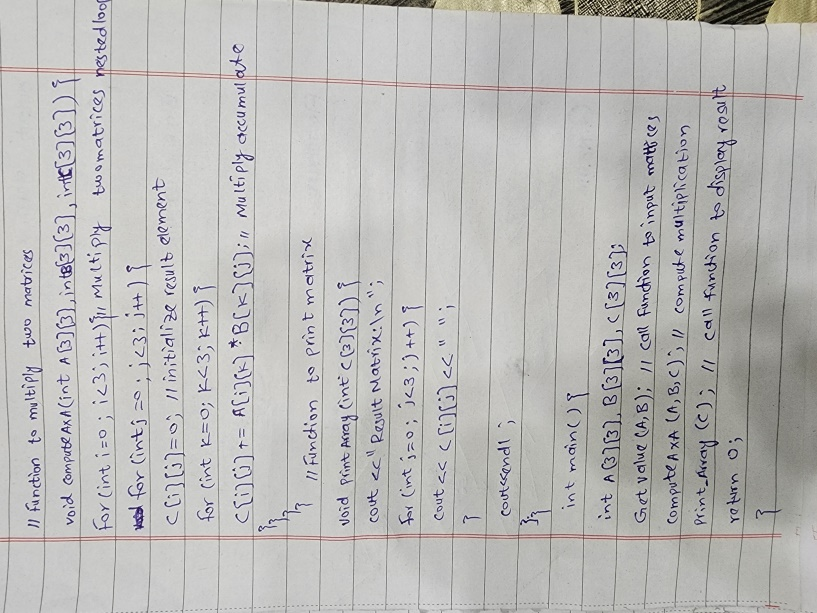 // Function to multiply two matrices
void computeAxA(int A[3][3], int B[3][3], int C[3][3]) {
For (int i=0; i<3; i++) { // Multiply two matrices nested loop
for (int j=0; j<3; j++) {
C[i][j]=0; // initialize result element
for (int k=0; k<3; k++) {
C[i][j] += A[i][k] * B[k][j]; // Multiply accumulate
}}}
// Function to print matrix
void print Array (int C[3][3]) {
cout << "Result Matrix:\n";
for (int j=0; j<3; j++) {
cout << C[i][j] << " ";
}
cout<<endl;
}}
int main() {
int A[3][3], B[3][3], C[3][3];
Get value (A,B); // call function to input matrices
compute A x A (A,B,C); // compute multiplication
Print_Array (C); // call function to display result
return 0;
}